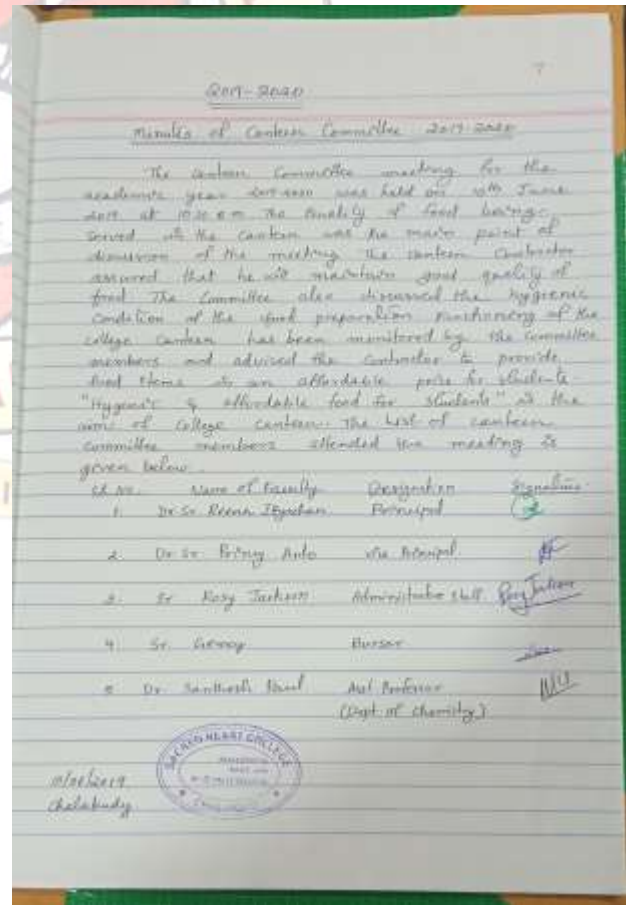 7
2019-2020
Minutes of Canteen Committee 2019-2020
The canteen Committee meeting for the
academic year 2019-2020 was held on 10th June
2019 at 10.30 a.m. The quality of food being
served at the canteen was the main point of
discussion of the meeting. The canteen Contractor
assured that he will maintain good quality of
food. The Committee also discussed the hygienic
Condition of the food preparation. Functioning of the
college Canteen has been monitored by the committee
members and advised the contractor to provide
food items at an affordable price for students.
"Hygienic & affordable food for students" is the
aim of College canteen. The list of canteen
committee members attended the meeting is
given below.
Sl.No. Name of Faculty Designation Signature
1. Dr. Sr. Reena Principal
2. Dr. Sr. Anto Vice Principal
3. Sr. Rosy Administrative staff
4. Sr. Bursar
5 Dr. Santhosh Asst Professor
(Dept of Chemistry)
SACRED HEART COLLEGE
/2019
Chalakudy